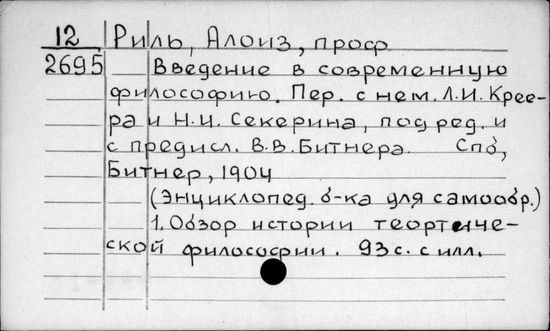 12 Риль, Алоиз, проф
2695 Введение в современную
философию. Пер. с нем. Л.И. Крее-
ра и Н.И. Секерина, под ред. и
с предисл. В.В. Битнера. Спб,
Битнер, 1904
(Энциклопед. б-ка для самообр.)
1. Обзор истории теортиче-
ской философии. 93 с. с илл.